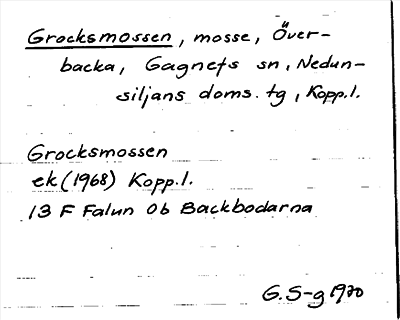 Grocksmossen, mosse, Över-
backa, Gagnefs sn, Nedan-
siljans doms. tg, Kopp.l.
Grocksmossen
ek (1968) Kopp.l.
13 F Falun 0b Backbodarna
G. S-g 1970